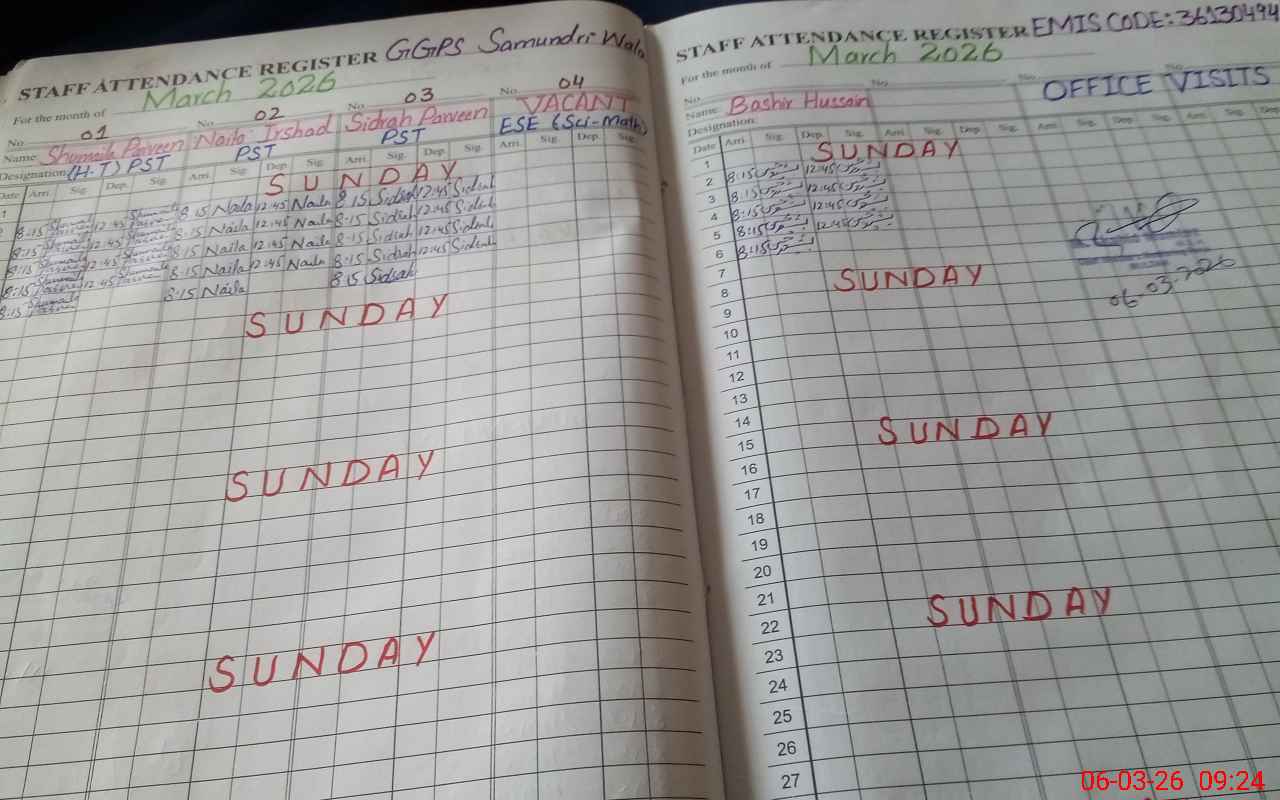 STAFF ATTENDANCE REGISTER GGPS Samundri Wala
For the month of March 2026
No. 01 No. 02 No. 03 No. 04
Name Shumaila Parveen Naila Irshad Sidrah Parveen VACANT
Designation (H.T) PST PST PST ESE (Sci-Math)
Date Arri. Sig. Dep. Sig. Arri. Sig. Dep. Sig. Arri. Sig. Dep. Sig. Arri. Sig. Dep. Sig.
1 SUNDAY
2 8:15 Shumaila Parveen 12:45 Shumaila Parveen 8:15 Naila 12:45 Naila 8:15 Sidrah 12:45 Sidrah
8:15 Shumaila Parveen 12:45 Shumaila Parveen 8:15 Naila 12:45 Naila 8:15 Sidrah 12:45 Sidrah
8:15 Shumaila Parveen 12:45 Shumaila Parveen 8:15 Naila 12:45 Naila 8:15 Sidrah 12:45 Sidrah
8:15 Shumaila Parveen 12:45 Shumaila Parveen 8:15 Naila 12:45 Naila 8:15 Sidrah 12:45 Sidrah
8:15 Shumaila Parveen 8:15 Naila 8:15 Sidrah
SUNDAY
SUNDAY
SUNDAY
STAFF ATTENDANCE REGISTER EMIS CODE: 36130494
For the month of March 2026
No. No. No. OFFICE VISITS
Name Bashir Hussain
Designation:
Date Arri. Sig. Dep. Sig. Arri. Sig. Dep. Sig. Arri. Sig. Dep. Sig. Arri. Sig. Dep.
1 SUNDAY
2 8:15 12:45
3 8:15 12:45
4 8:15 12:45
5 8:15 12:45
6 8:15
7
8 SUNDAY
06-03-2026
9
10
11
12
13
14
15 SUNDAY
16
17
18
19
20
21
22 SUNDAY
23
24
25
26
27
06-03-26 09:24